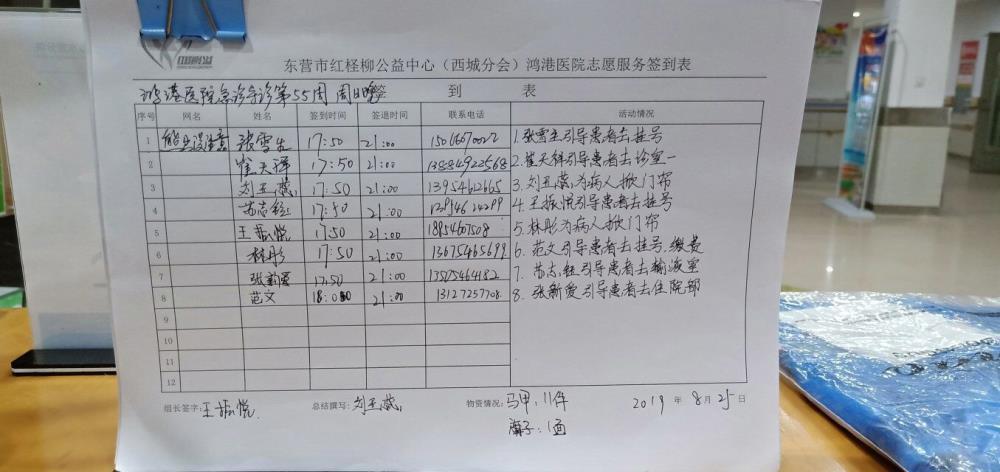 东营市红柽柳公益中心（西城分会）鸿港医院志愿服务签到表
鸿港医院急诊导诊第55周 周日晚
签 到 表
序号 网名 姓名 签到时间 签退时间 联系电话 活动情况
1 张雪生 17:50 21:00
2 崔天祥 17:50 21:00 13884922568
3 刘玉燕 17:50 21:00 13954612665
4 苏志红 17:50 21:00
5 王振悦 17:50 21:00 18954607508
6 林彤 17:50 21:00 13675465699
7 张新爱 17:50 21:00 13575464182
8 范文 18:00 21:00 13127257708
9
10
11
12
1.张雪生引导患者去挂号
2.崔天祥引导患者去诊室一
3.刘玉燕为病人掀门帘
4.王振悦引导患者去挂号
5.林彤为病人掀门帘
6.范文引导患者去挂号.缴费
7.苏志红引导患者去输液室
8.张新爱引导患者去住院部
组长签字:王振悦. 总结撰写:刘玉燕 物资情况:马甲:11件 2019 年 8 月 25 日
:1面